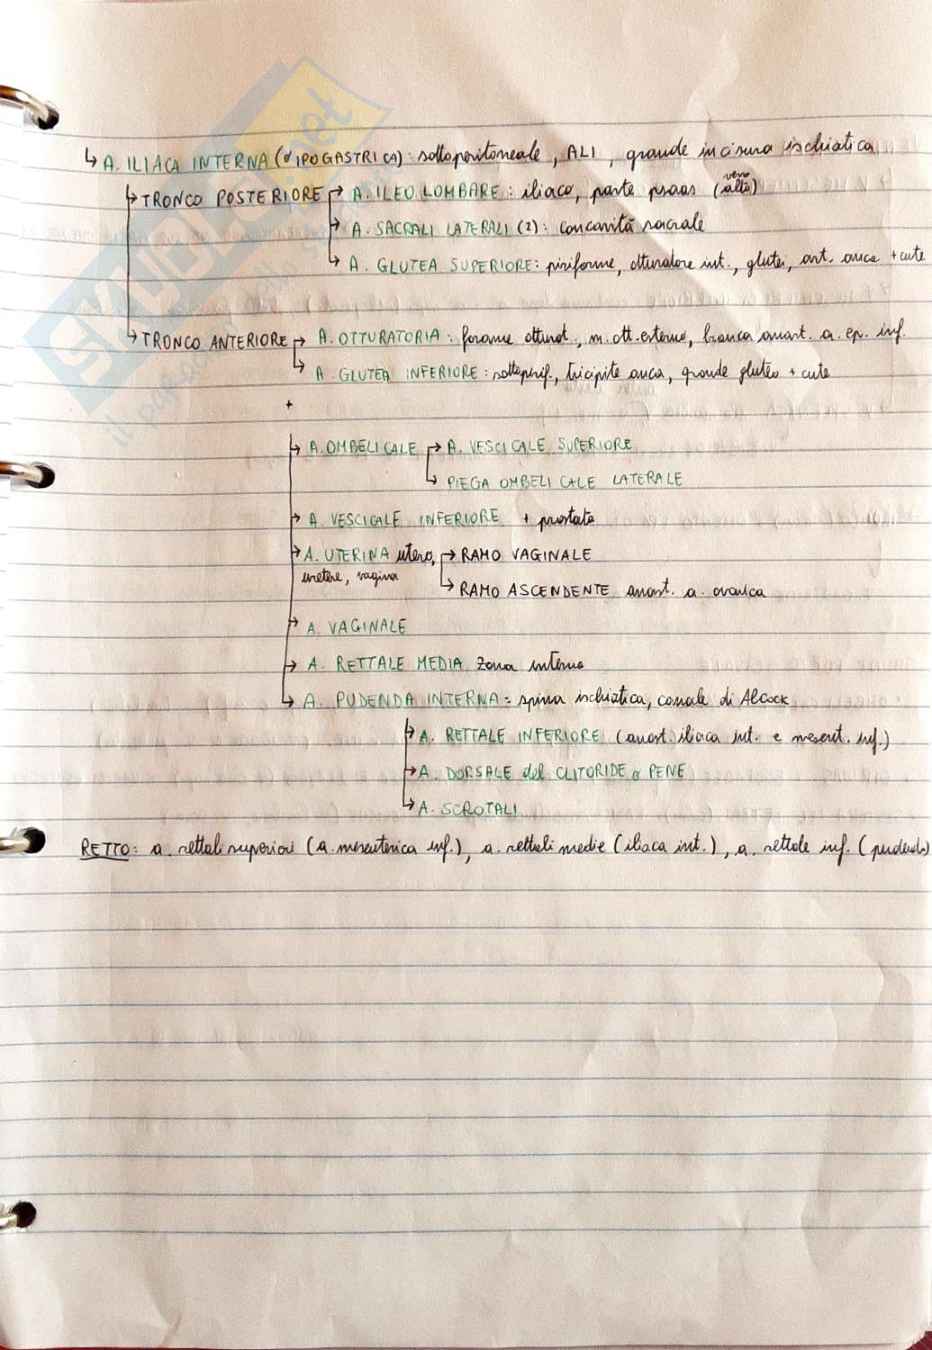 A. ILIACA INTERNA (o IPOGASTRICA): sottoperitoneale, ALI, grande incisura ischiatica
TRONCO POSTERIORE A. ILEO LOMBARE: iliaco, parte psoas (verso alto)
A. SACRALI LATERALI (2): concavità sacrale
A. GLUTEA SUPERIORE: piriforme, otturatore int., glutei, art. anca + cute
TRONCO ANTERIORE A. OTTURATORIA: forame otturat., m. ott. esterno, branca anast. a. ep. inf.
A. GLUTEA INFERIORE: sottopirif., tricipite anca, grande gluteo + cute
+
A. OMBELICALE A. VESCICALE SUPERIORE
PIEGA OMBELICALE LATERALE
A. VESCICALE INFERIORE + prostata
A. UTERINA utero, RAMO VAGINALE
uretere, vagina
RAMO ASCENDENTE anast. a. ovarica
A. VAGINALE
A. RETTALE MEDIA zona interna
A. PUDENDA INTERNA: spina ischiatica, canale di Alcock
A. RETTALE INFERIORE (anast. iliaca int. e mesent. inf.)
A. DORSALE del CLITORIDE o PENE
A. SCROTALI
RETTO: a. rettali superiori (a. mesenterica inf.), a. rettali medie (iliaca int.), a. rettale inf. (pudenda)
SKUOLA.net